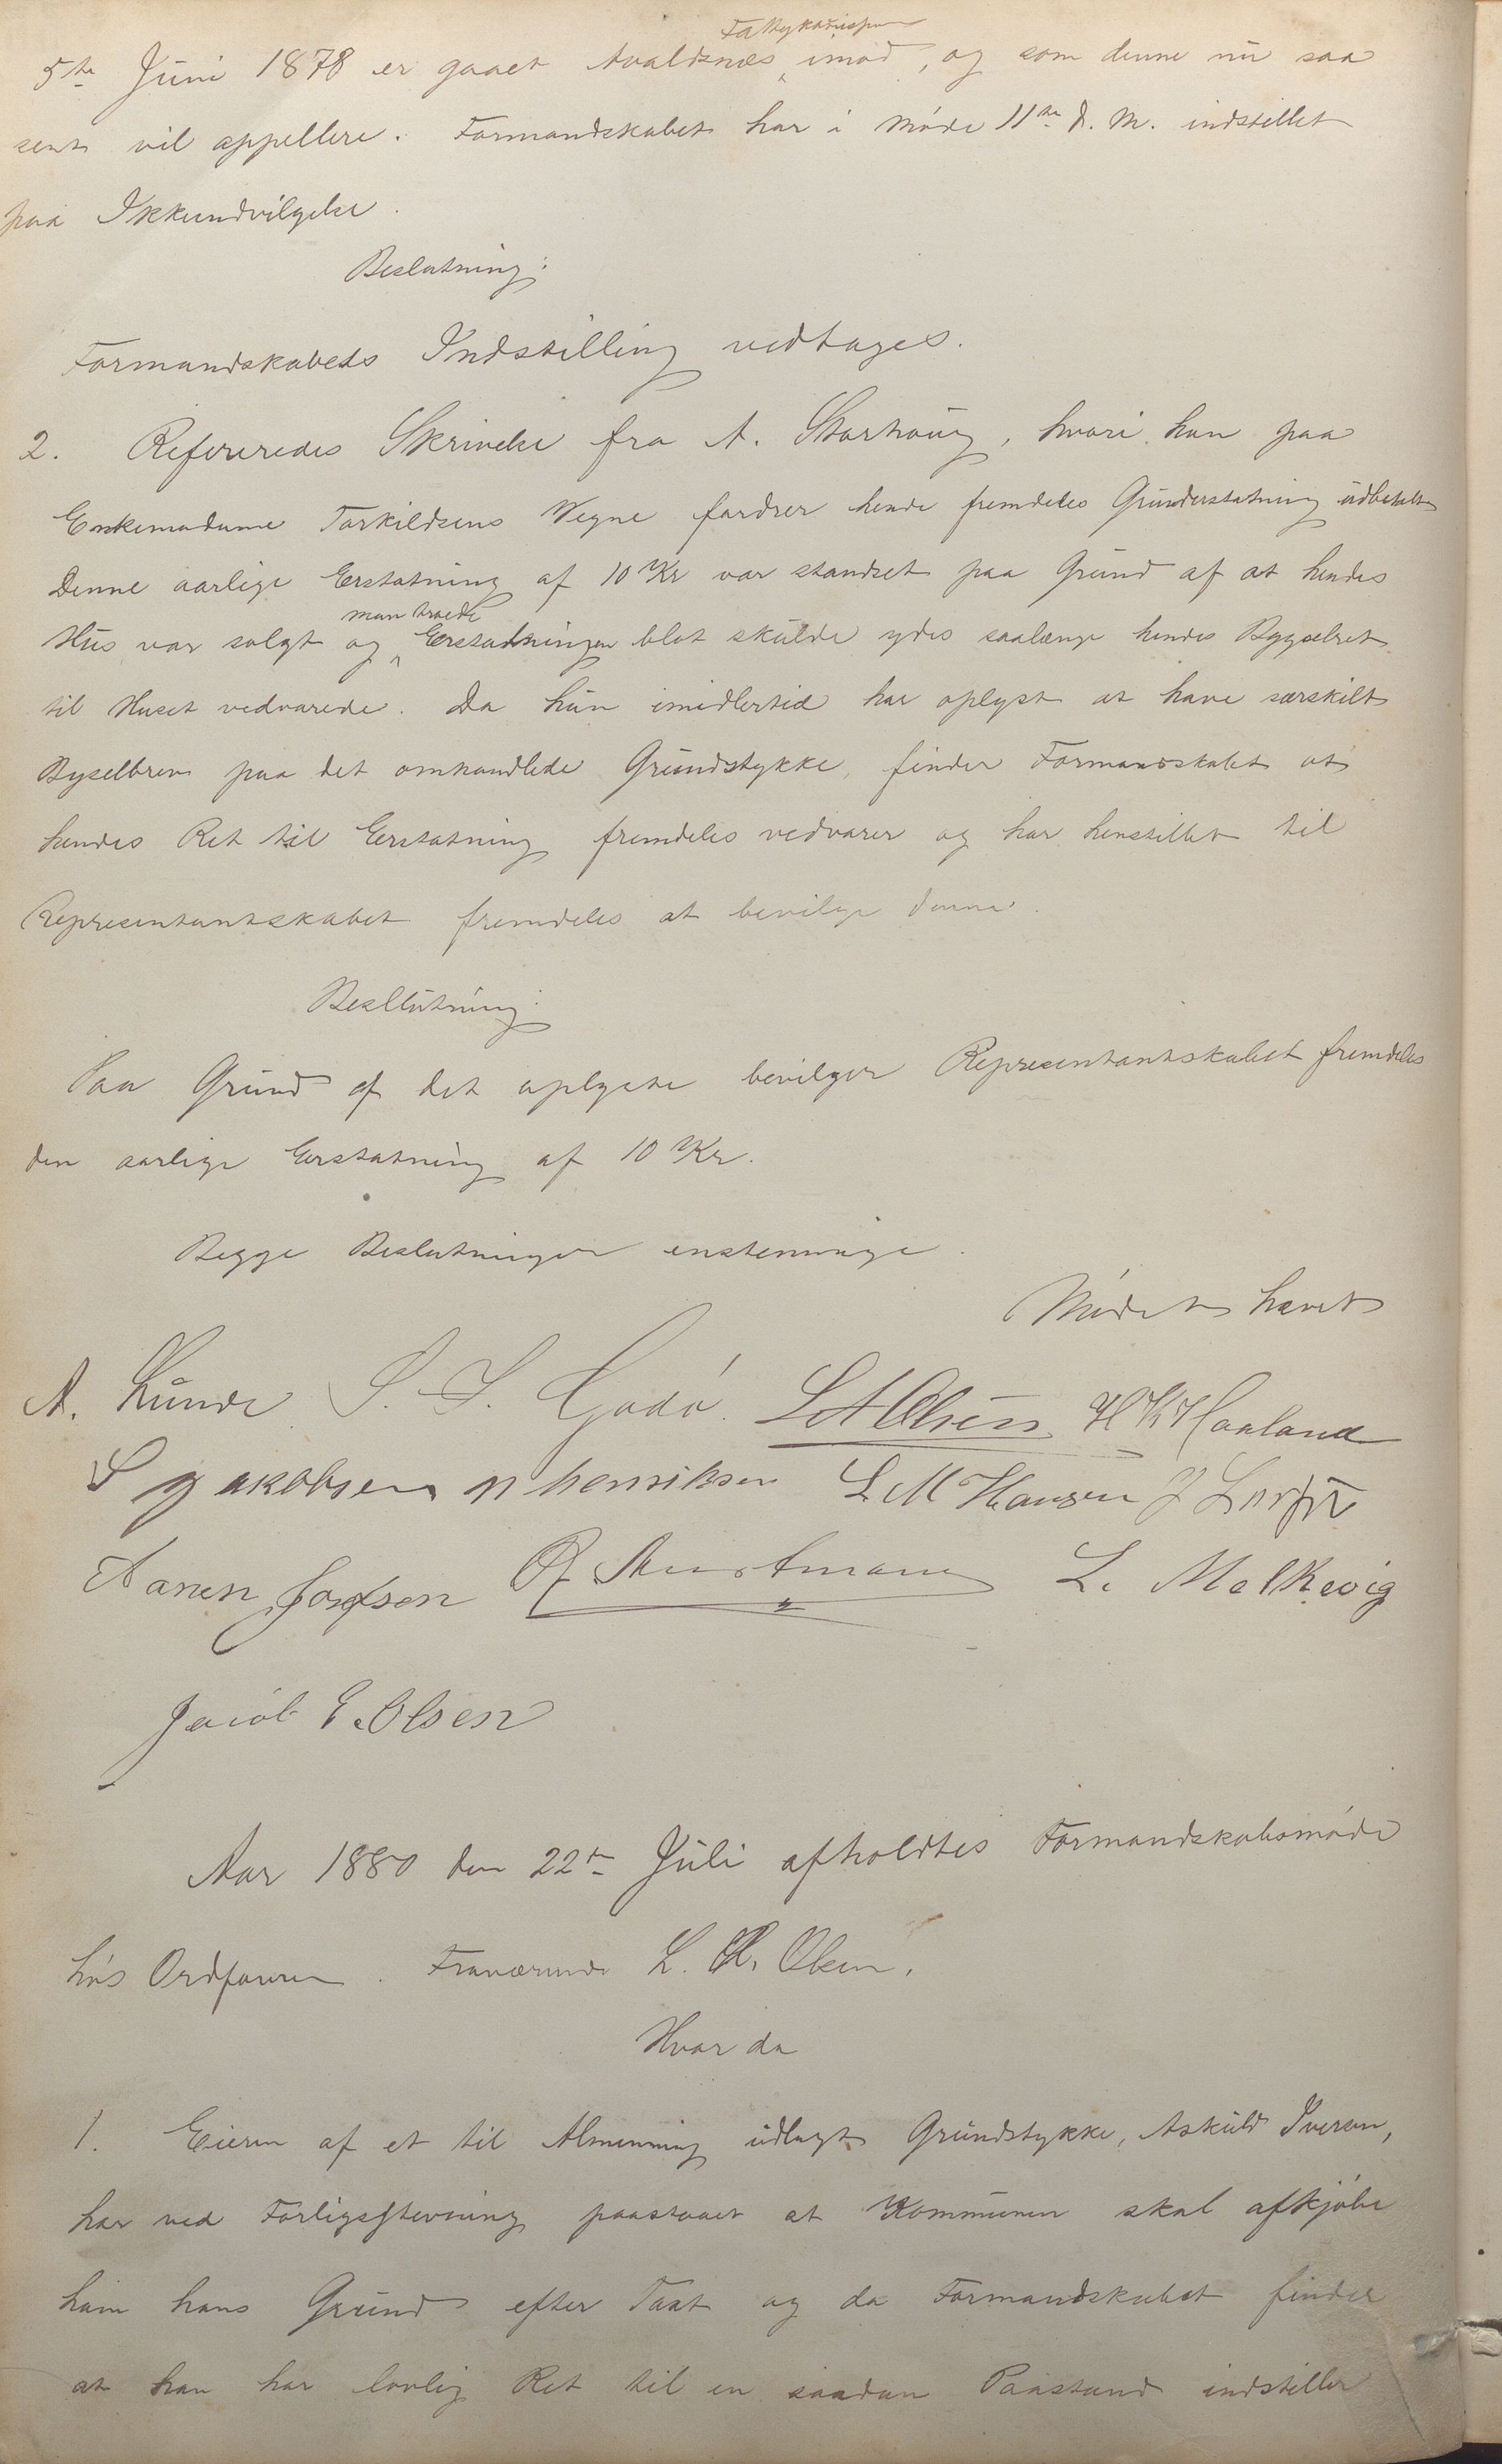 5te Juni 1878 er gaaet Avaldsnæs Fattigkommission imod, og som denne nu saa
sent vil appellere. Formandskabet har i Møde 11te d. M. indstillet
paa Ikkeindvilgelse.
Beslutning:
Formandskabets Indstilling vedtages.
2. Refereredes Skrivelse fra A. Storhoug, hvori han paa
Enkemadame Torkildsens Vegne fordrer hende fremdeles Grunderstatning udbetalt
Denne aarlige Erstatning af 10 Kr var standset paa Grund af at hendes
Hus var solgt og man troede Erstatningen blot skulde ydes saalænge hendes Bygselret
til Huset vedvarede. Da hun imidlertid har oplyst at have særskilt
Bygselbrev paa det omhandlede Grundstykke, finder Formandskabet at
hendes Ret til Erstatning fremdeles vedvarer og har henstillet til
Representantskabet fremdeles at bevilge denne.
Beslutning:
Paa Grund af det oplyste bevilger Representantskabet fremdeles
den aarlige Erstatning af 10 Kr.
Begge Beslutninger enstemmige.
Mødet hævet
A. Lunde S. S. Godø. L A Olsen H K Haaland
S Jakobsen N Henriksen L M Hansen J
Aanen Josefsen L. Melkevig
Jacob E. Olsen
Aar 1880 den 22de Juli afholdtes Formandskabsmøde
hos Ordføreren. Fraværende L. A. Olsen.
Hvor da
1. Eieren af et til Almenning udlagt Grundstykke, Askuld Iversen,
har ved Forligsstevning paastaaet at Kommunen skal afkjøbe
ham hans Grund efter Taxt og da Formandskabet finder
at han har lovlig Ret til en saadan Paastand indstiller